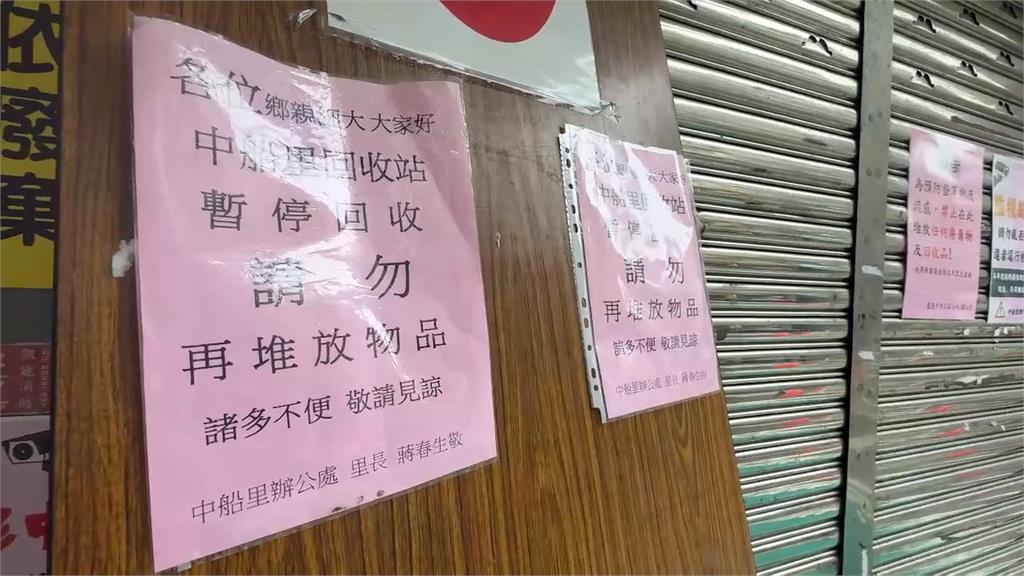 各位鄉親 大大家好
中船里回收站
暫停回收
請勿
再堆放物品
諸多不便 敬請見諒
中船里辦公處 里長 蔣春生敬
大家
中船里回收站
暫停回
請勿
再堆放物品
諸多不便 敬請見諒
中船里辦公處 里長 蔣春生
為預防登革熱及
流感,禁止在此
堆放任何廢棄物
及回收品!
衣發棄